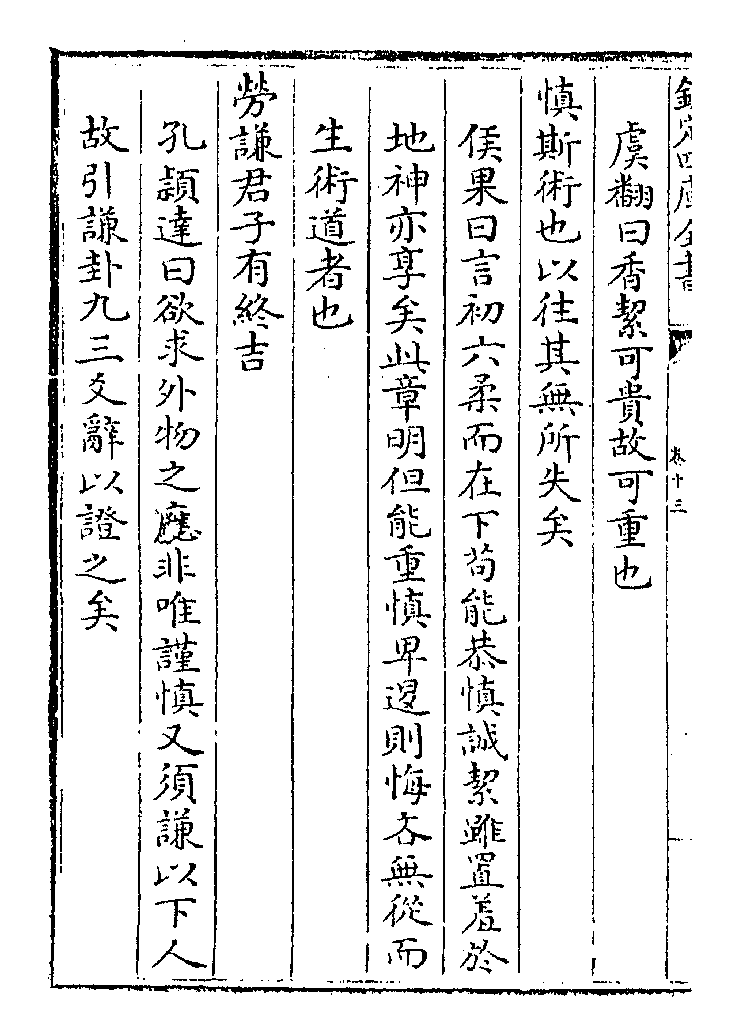 欽定四庫全書
卷十三
虞翻曰香絜可貴故可重也
慎斯術也以往其無所失矣
侯果曰言初六柔而在下苟能恭慎誠絜雖置羞於
地神亦享矣此章明但能重慎卑退則悔吝無從而
生術道者也
勞謙君子有終吉
孔頴達曰欲求外物之應非唯謹慎又須謙以下人
故引謙卦九三爻辭以證之矣